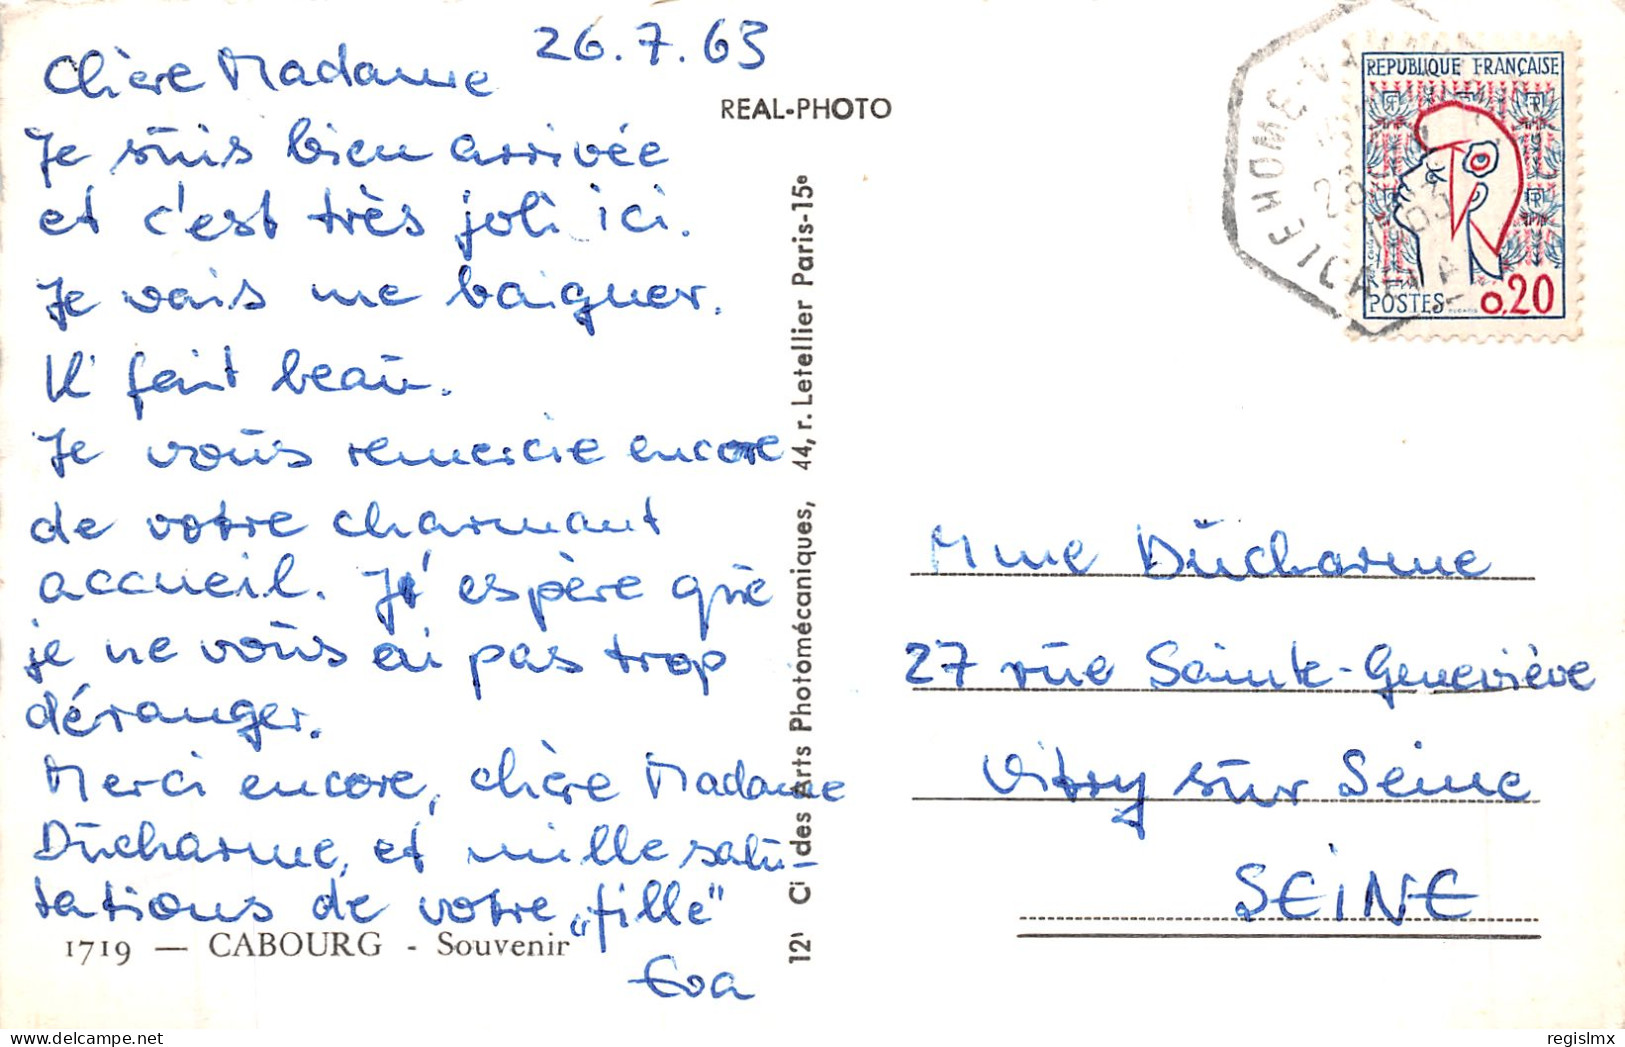 26.7.63
Chère Madame
Je suis bien arrivée
et c'est très joli ici.
Je vais me baigner.
Il fait beau.
Je vous remercie encore
de votre charmant
accueil. J'espère que
je ne vous ai pas trop
déranger.
Merci encore, chère Madame
Ducharme, et mille salu-
tations de votre „fille"
Eva
1719 — CABOURG - Souvenir
REAL-PHOTO
12¹ Cⁱ des Arts Photomécaniques, 44, r. Letellier Paris-15ᵉ
REPUBLIQUE FRANÇAISE
POSTES 0,20
Mme Ducharme
27 rue Sainte-Geneviève
Vitry sur Seine
SEINE
regislmx